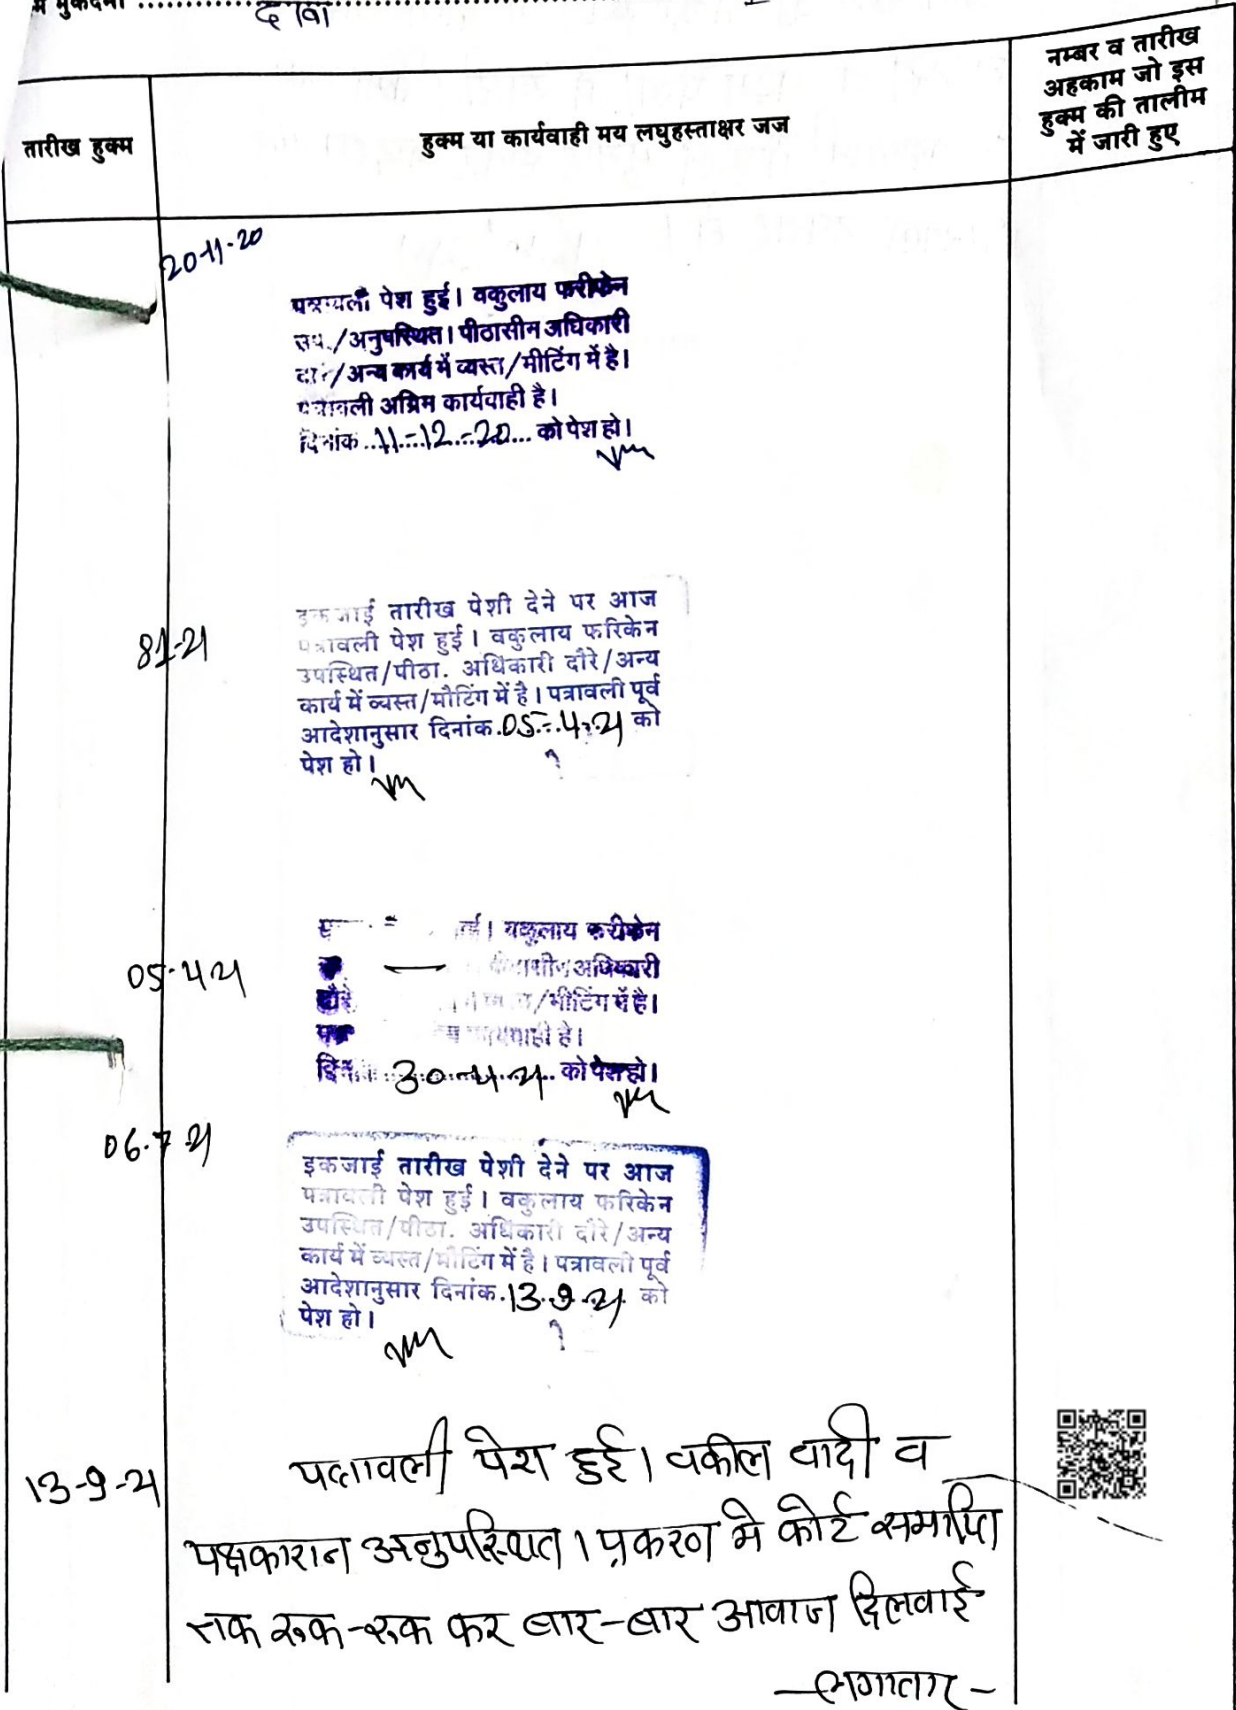 दावा
तारीख हुक्म
हुक्म या कार्यवाही मय लघुहस्ताक्षर जज
नम्बर व तारीख
अहकाम जो इस
हुक्म की तालीम
में जारी हुए
20-11-20
पत्रावली पेश हुई। वकुलाय फरीकेन
उप./अनुपस्थित। पीठासीन अधिकारी
दौरे/अन्य कार्य में व्यस्त/मीटिंग में है।
पत्रावली अग्रिम कार्यवाही है।
दिनांक..11-12-20... को पेश हो।
8-1-21
इकजाई तारीख पेशी देने पर आज
पत्रावली पेश हुई। वकुलाय फरिकेन
उपस्थित/पीठा. अधिकारी दौरे/अन्य
कार्य में व्यस्त/मीटिंग में है। पत्रावली पूर्व
आदेशानुसार दिनांक.05-4-21 को
पेश हो।
05-4-21
वकुलाय फरीकेन
अधिकारी
दौरे /मीटिंग में है।
कार्यवाही है।
दिनांक 30-4-21 को पेश हो।
06-7-21
इकजाई तारीख पेशी देने पर आज
पत्रावली पेश हुई। वकुलाय फरिकेन
उपस्थित/पीठा. अधिकारी दौरे/अन्य
कार्य में व्यस्त/मीटिंग में है। पत्रावली पूर्व
आदेशानुसार दिनांक.13-9-21 को
पेश हो।
13-9-21
पत्रावली पेश हुई। वकील वादी व
पक्षकारान अनुपस्थित। प्रकरण मे कोर्ट समाप्ति
तक रुक-रुक कर बार-बार आवाज दिलवाई
-लगातार-